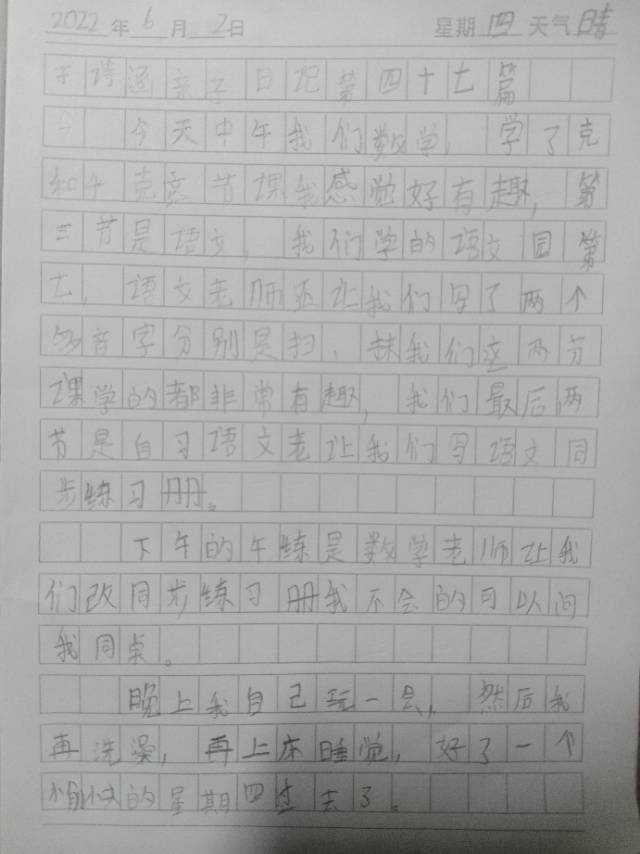 2022年6月2日 星期四 天气晴
亲子日记第四十七篇
今天中午我们数学，学了克
和千克这节课我感觉好有趣，第
三节是语文，我们学的语文园第
七，语文老师还让我们写了两个
多音字分别是扫、我们这两节
课学的都非常有趣，我们最后两
节是自习语文老让我们写语文同
步练习册。
下午的午练是数学老师让我
们改同步练习册我不会的可以问
我同桌。
晚上我自己玩一会，然后我
再洗澡，再上床睡觉，好了一个
愉快的星期四过去了。